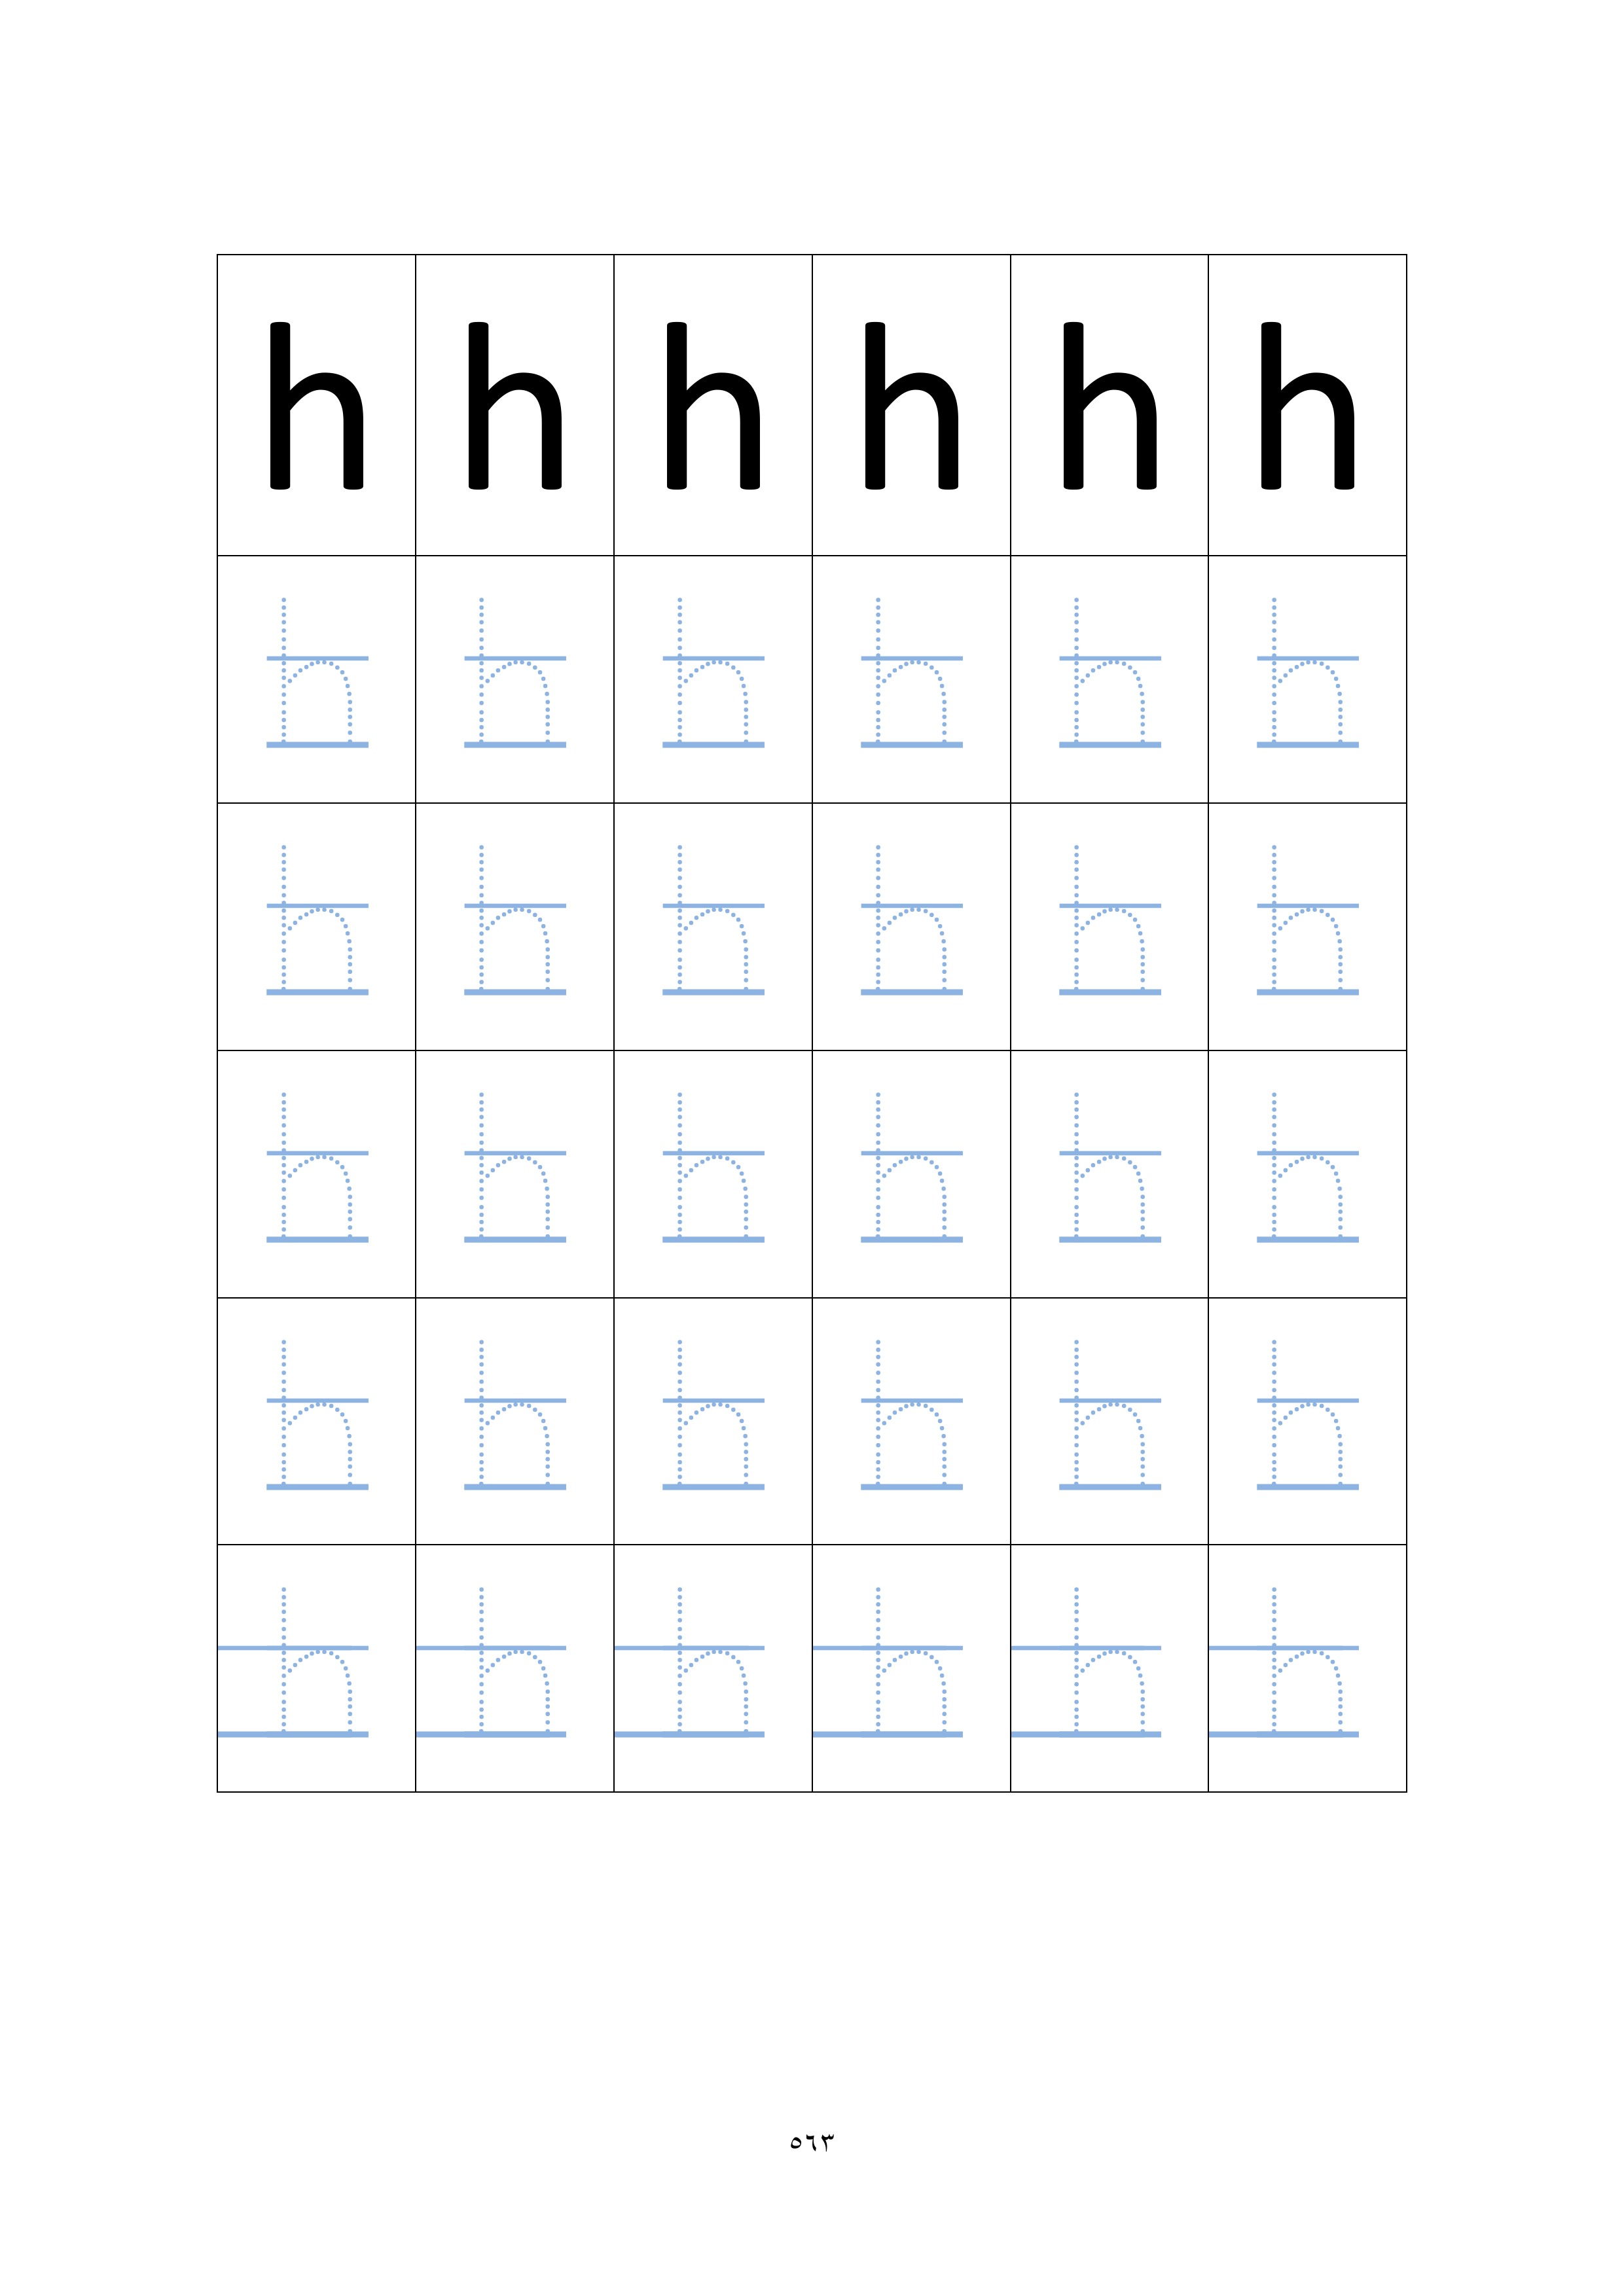 h h h h h h
h h h h h h
h h h h h h
h h h h h h
h h h h h h
h h h h h h
٥٦٣